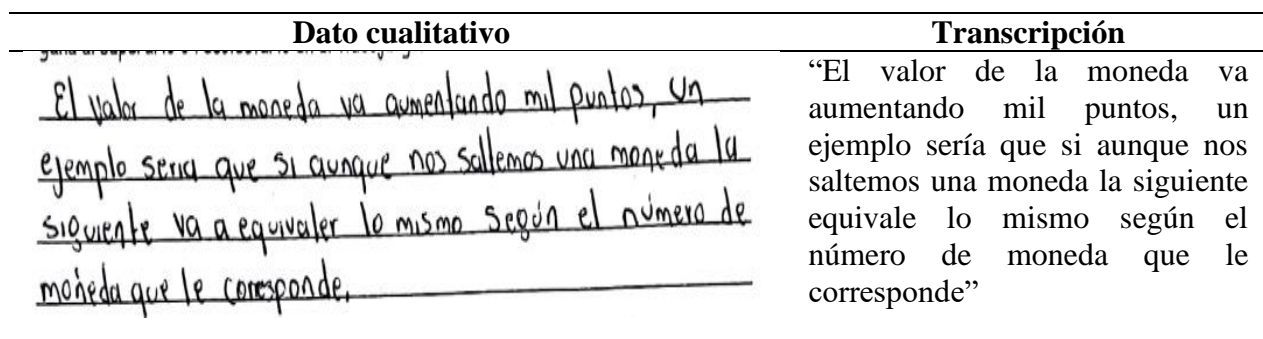 Dato cualitativo
Transcripción
El valor de la moneda va aumentando mil puntos, un
ejemplo seria que si aunque nos saltemos una moneda la
siguiente va a equivaler lo mismo según el número de
moneda que le corresponde.
“El valor de la moneda va
aumentando mil puntos, un
ejemplo sería que si aunque nos
saltemos una moneda la siguiente
equivale lo mismo según el
número de moneda que le
corresponde”